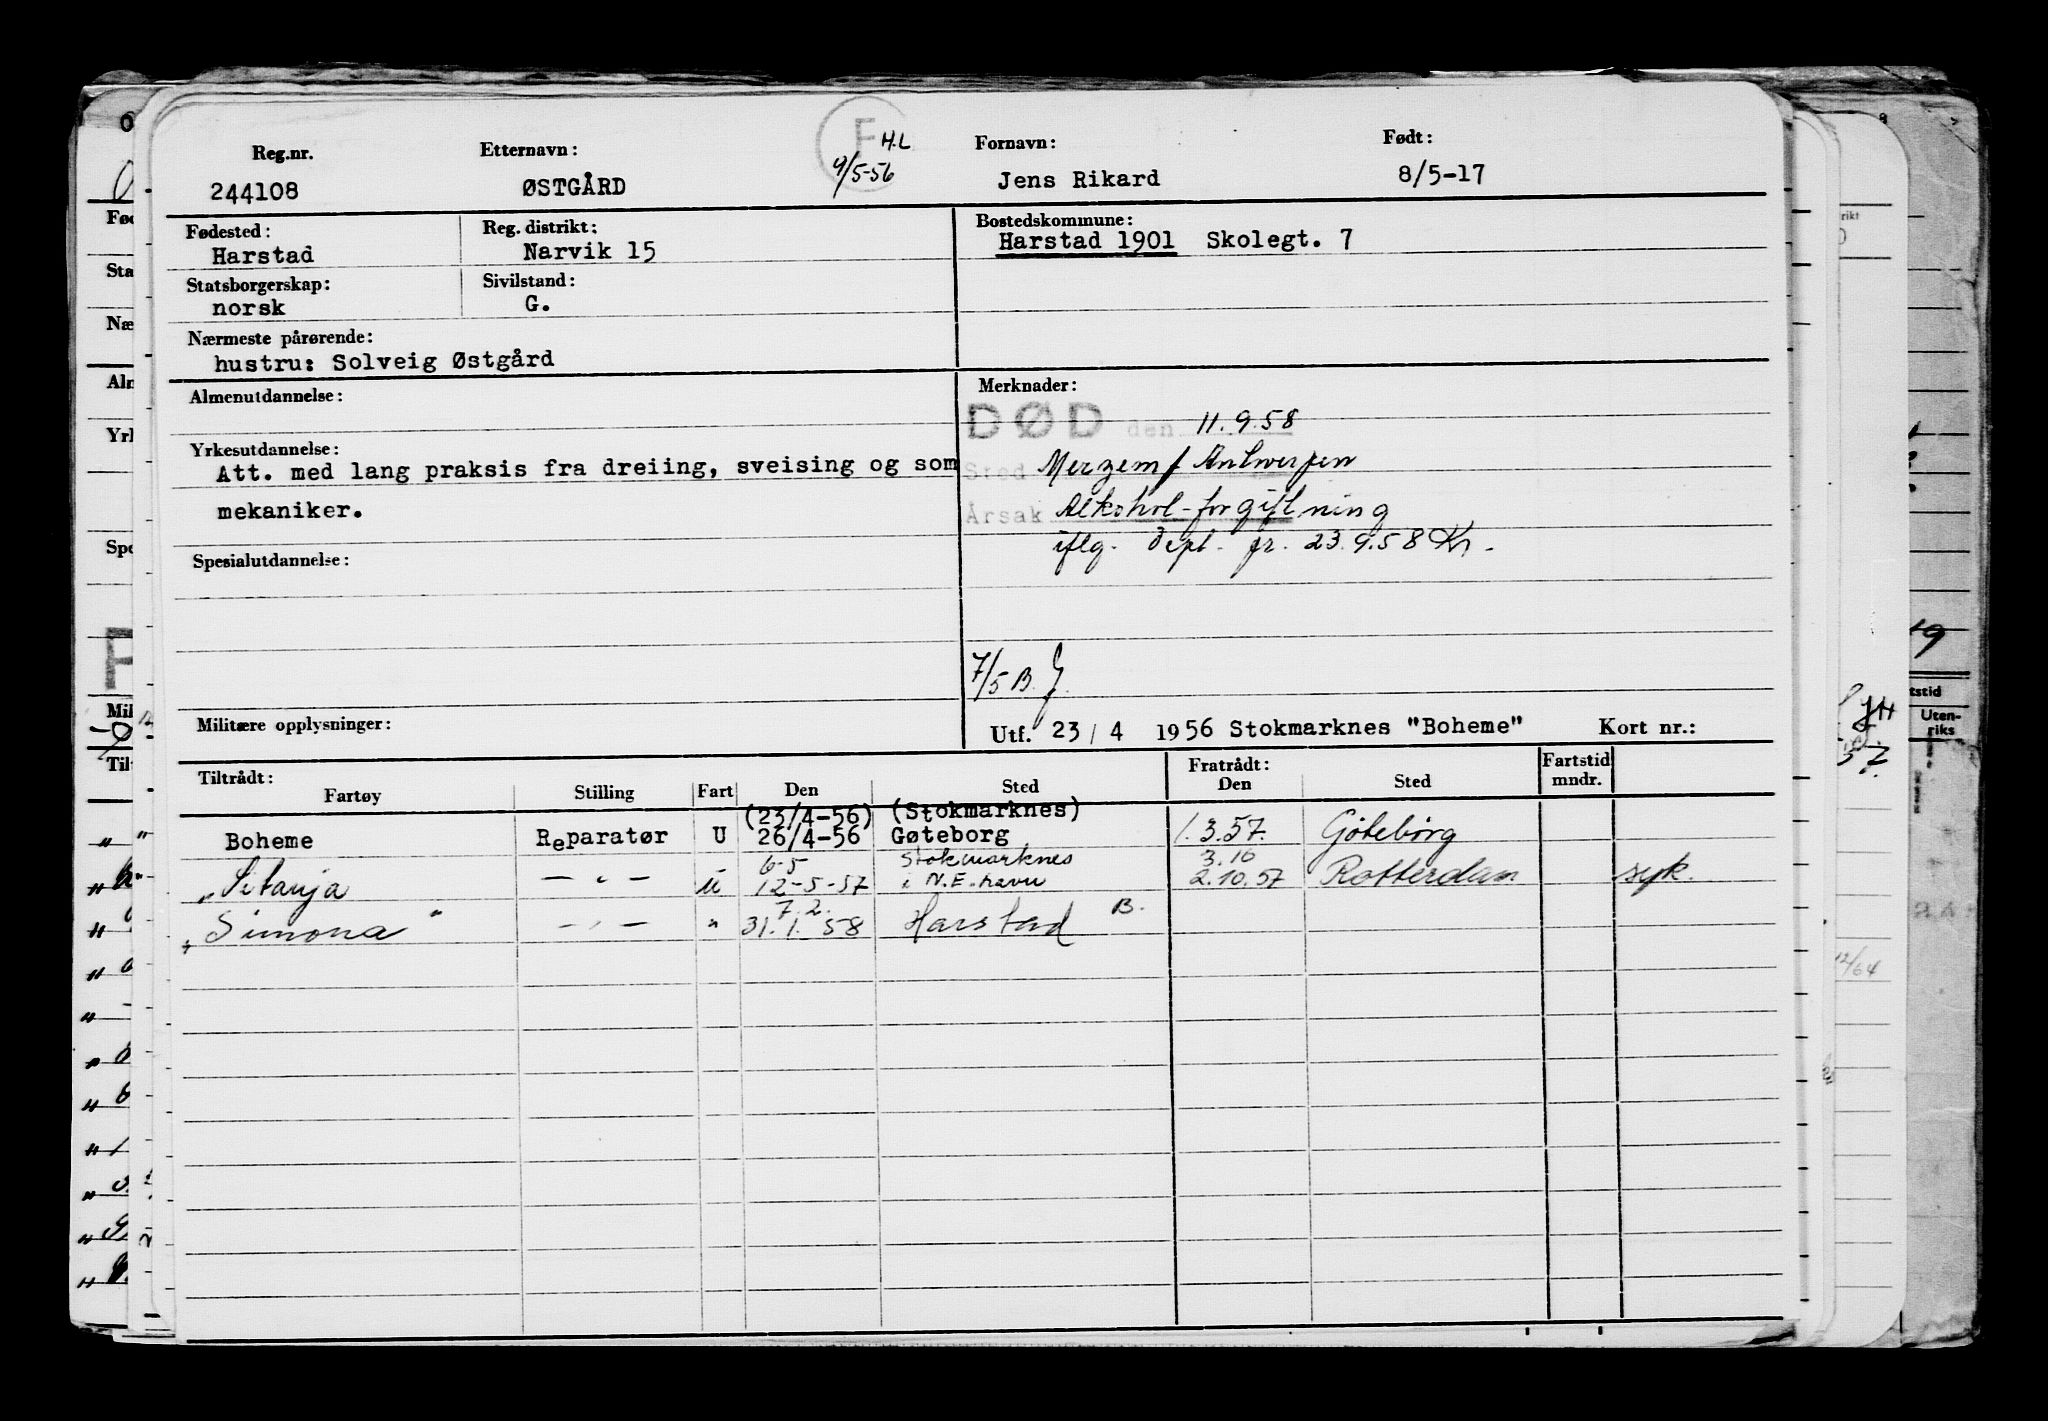 F H.L
9/5-56
Reg.nr. Etternavn: Fornavn: Født:
244108 ØSTGÅRD Jens Rikard 8/5-17
Fødested: Reg. distrikt: Bostedskommune:
Harstad Narvik 15 Harstad 1901 Skolegt. 7
Statsborgerskap: Sivilstand:
norsk G.
Nærmeste pårørende:
hustru: Solveig Østgård
Almenutdannelse:
Yrkesutdannelse:
Att. med lang praksis fra dreiing, sveising og som
mekaniker.
Spesialutdannelse:
Militære opplysninger:
Merknader:
DØD den 11.9.58
Sted Merzem / Antwerpen
Årsak Alkohol-forgiftning
iflg. Dept. fr. 23.9.58 Kr.
7/5 B.
Utf. 23/4 1956 Stokmarknes "Boheme" Kort nr.:
Tiltrådt: Fratrådt: Fartstid
Fartøy Stilling Fart Den Sted Den Sted mndr.
(23/4-56) (Stokmarknes)
" " Boheme Reparatør U 26/4-56 Gøteborg 1.3.57. Göteborg
6-5 Stokmarknes 3.10
"Sitanja — " — U 12-5-57 i N.E.-havn 2.10.57 Rotterdam syk.
7.2. B.
"Simona" — " — " 31.1.58 Harstad
Uten-
riks
12/64